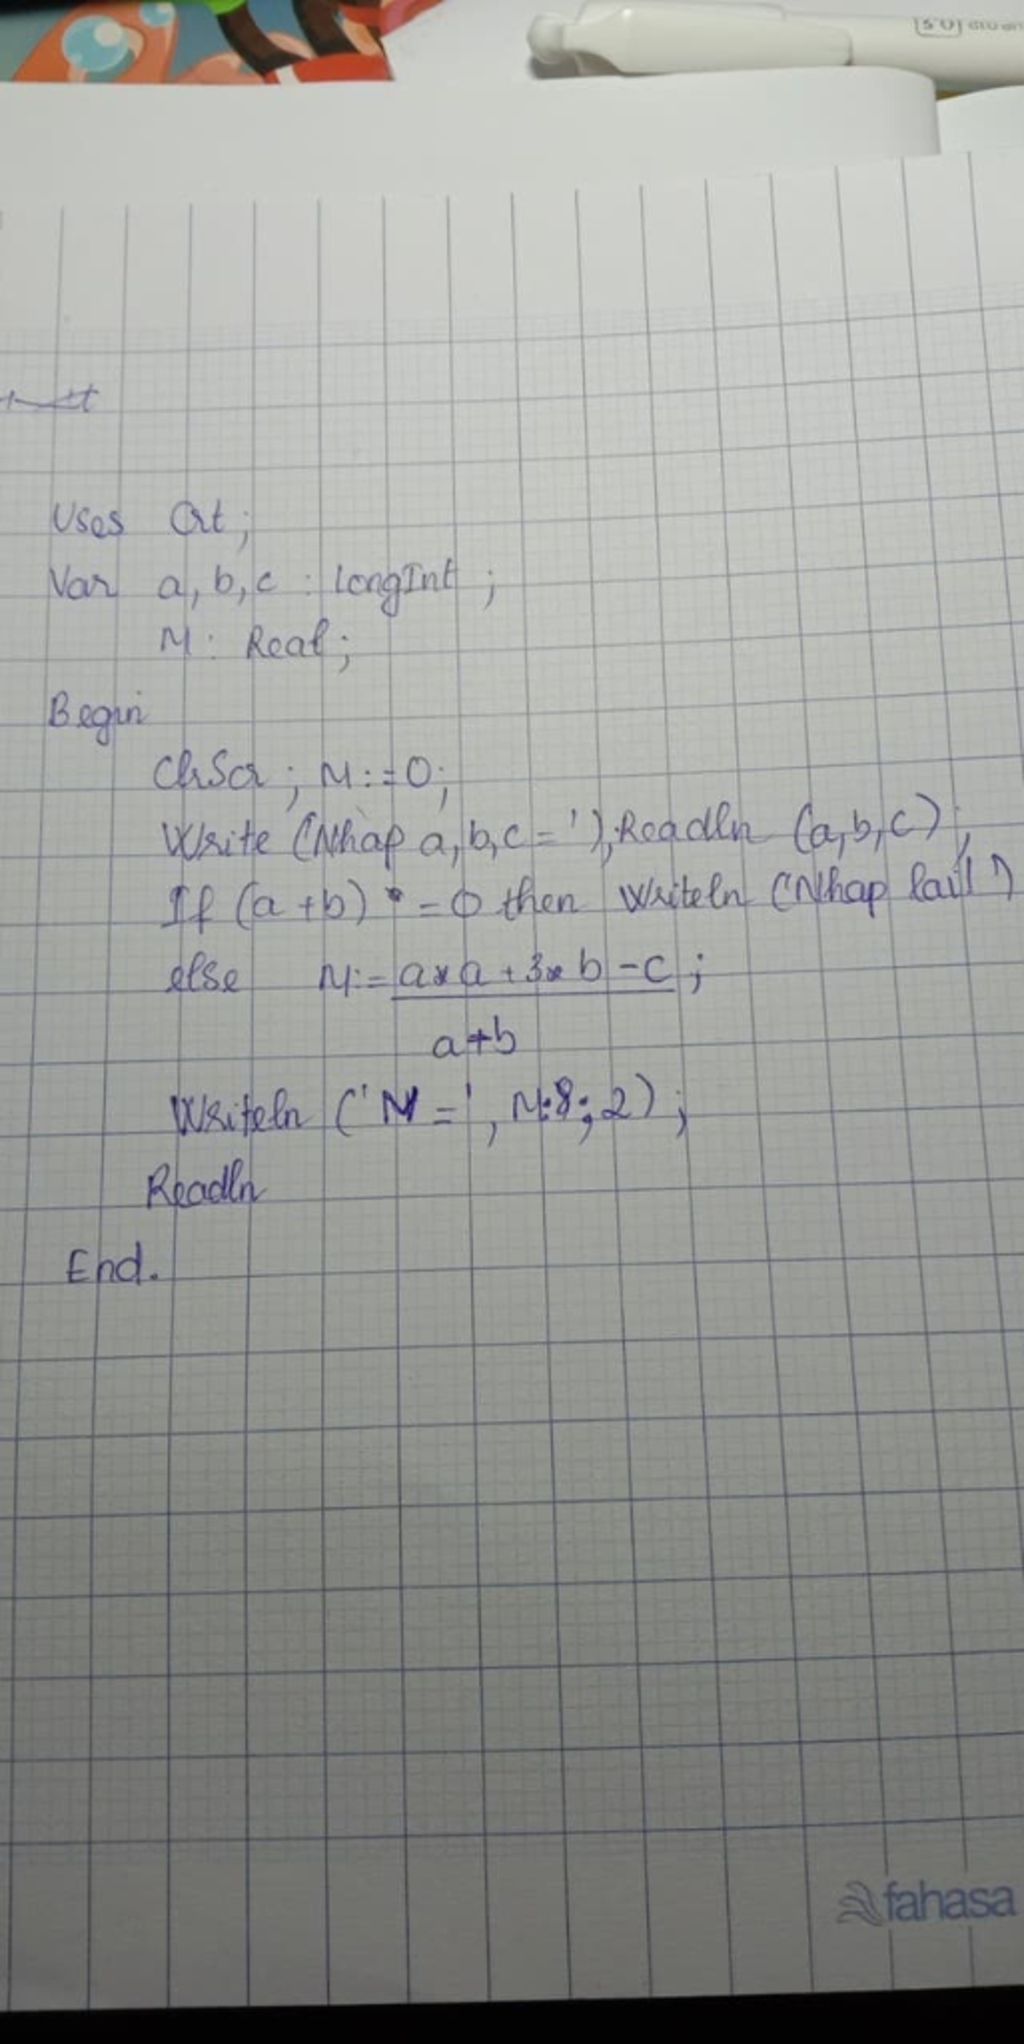 Uses Crt;
Var a, b, c : LongInt ;
M : Real ;
Begin
ClrScr ; M := 0;
Write ('Nhap a, b, c = '); Readln (a, b, c) ;
If (a + b) = 0 then Writeln ('Nhap lai!')
else M := a * a + 3 * b - c ;
a + b
Writeln ('M = ', M:8:2) ;
Readln
End.
fahasa